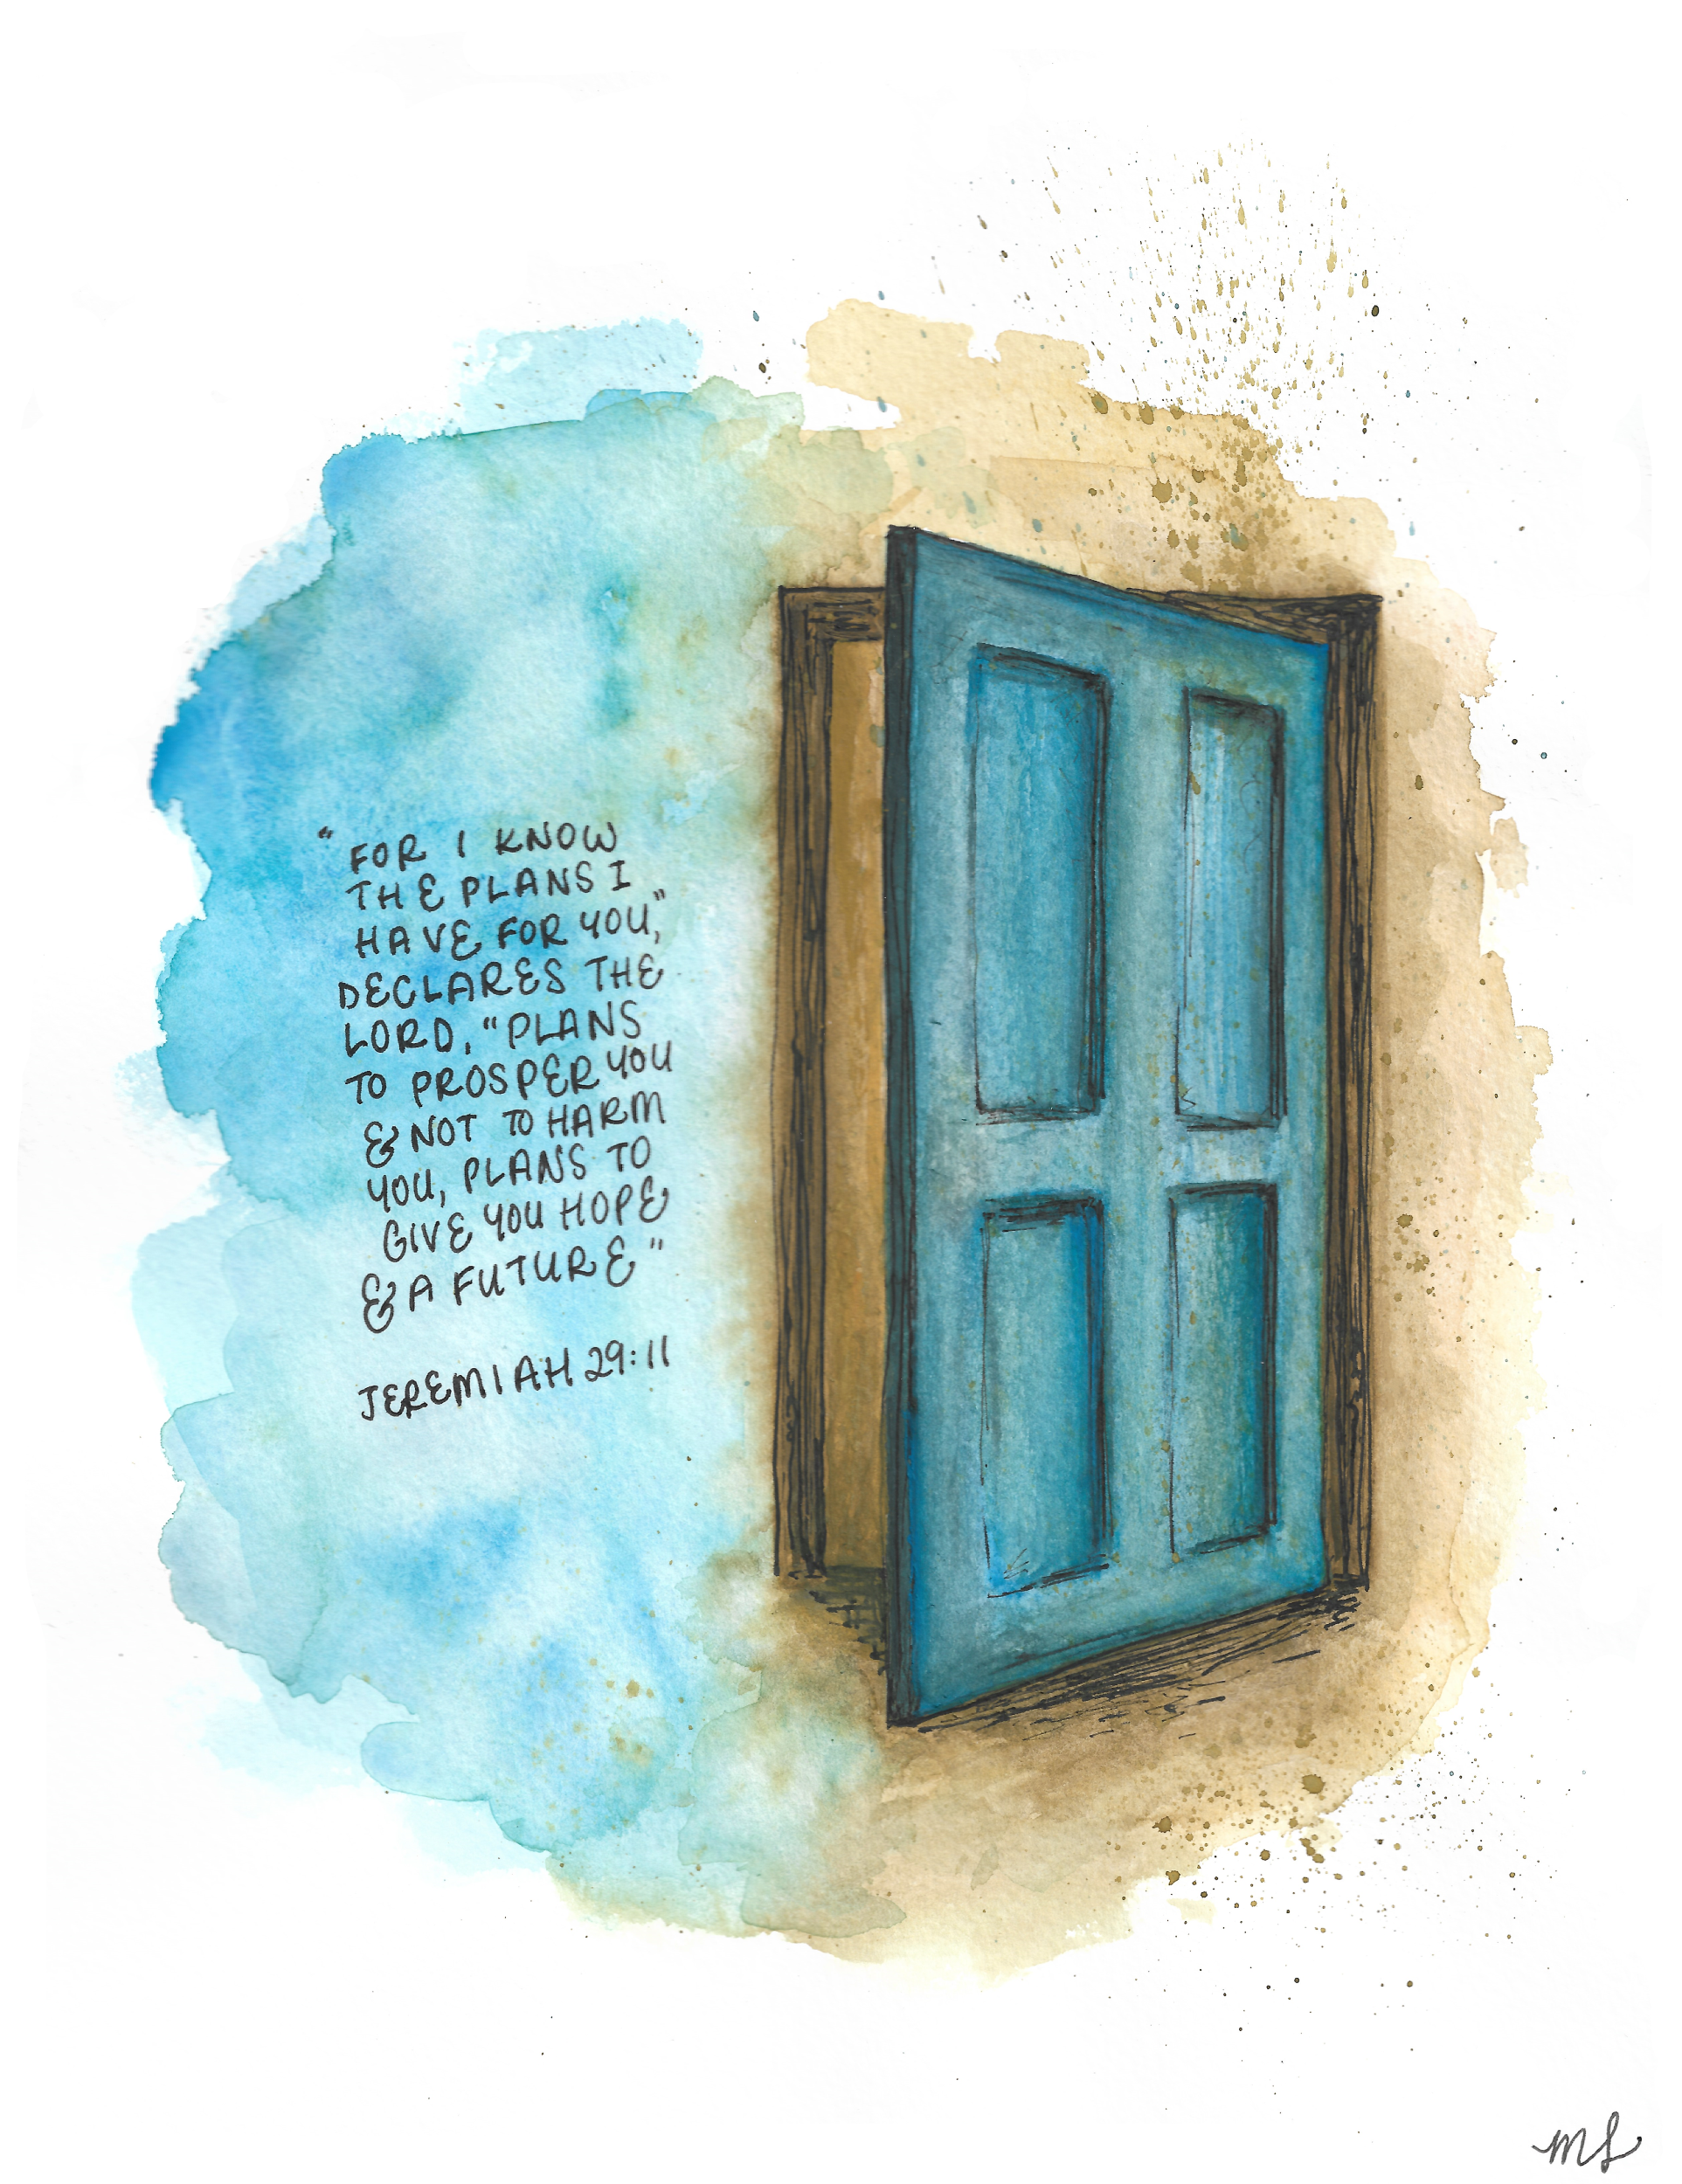 "FOR I KNOW
THE PLANS I
HAVE FOR YOU,"
DECLARES THE
LORD, "PLANS
TO PROSPER YOU
& NOT TO HARM
YOU, PLANS TO
GIVE YOU HOPE
& A FUTURE"
JEREMIAH 29:11
ML